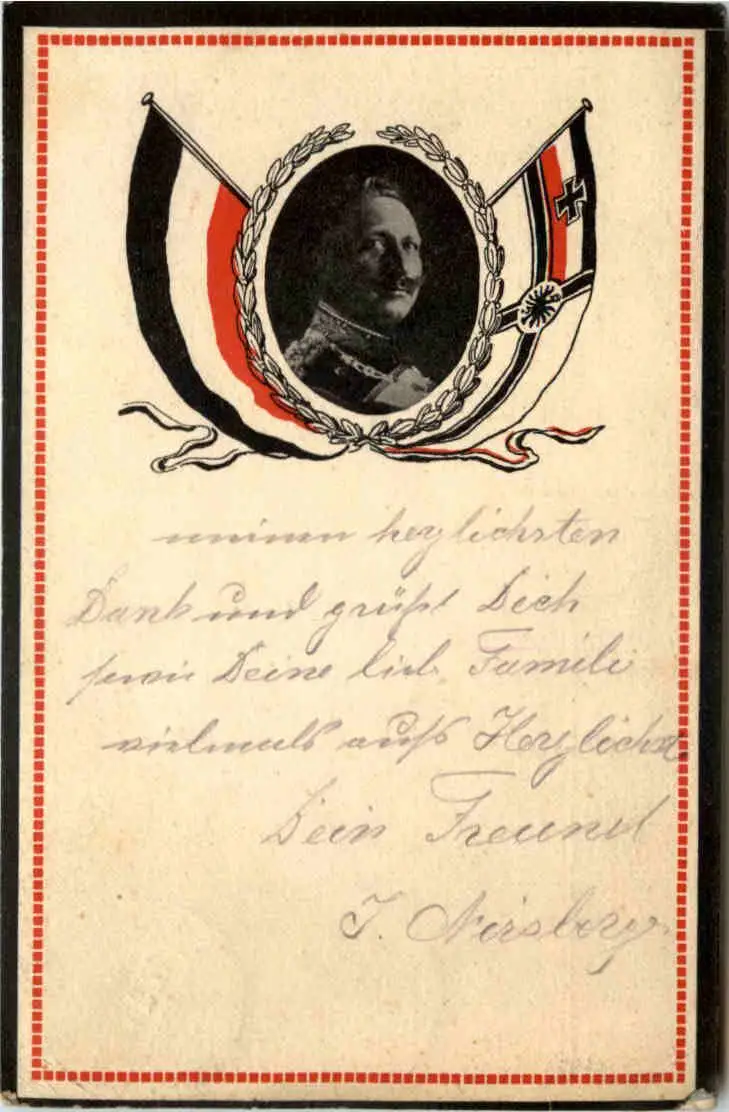 meinen herzlichsten
Dank und grüßt Dich
sowie Deine lieb. Famili
vielmals aufs Herzlichst
Dein Freund
J.